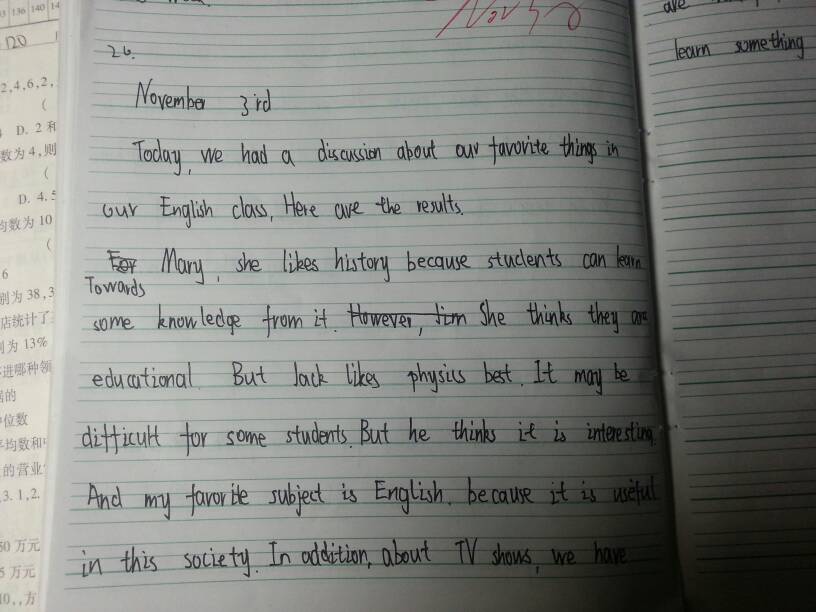 136 140 14
120
2,4,6,2,
(
D. 2 和
数为 4,则
(
D. 4.5
均数为 10
(
6
别为 38,3
店统计了
别为 13%
进哪种领
据的
中位数
平均数和
的营业
3.1,2.
50 万元
5 万元
10,,方
26.
November 3rd
Today, we had a discussion about our favorite things in
our English class, Here are the results.
For Mary, she likes history because students can learn
Towards
some knowledge from it. However, Jim She thinks they are
educational. But Jack likes physics best. It may be
difficult for some students. But he thinks it is interesting.
And my favorite subject is English. because it is useful
in this society. In addition, about TV shows, we have
are
learn something